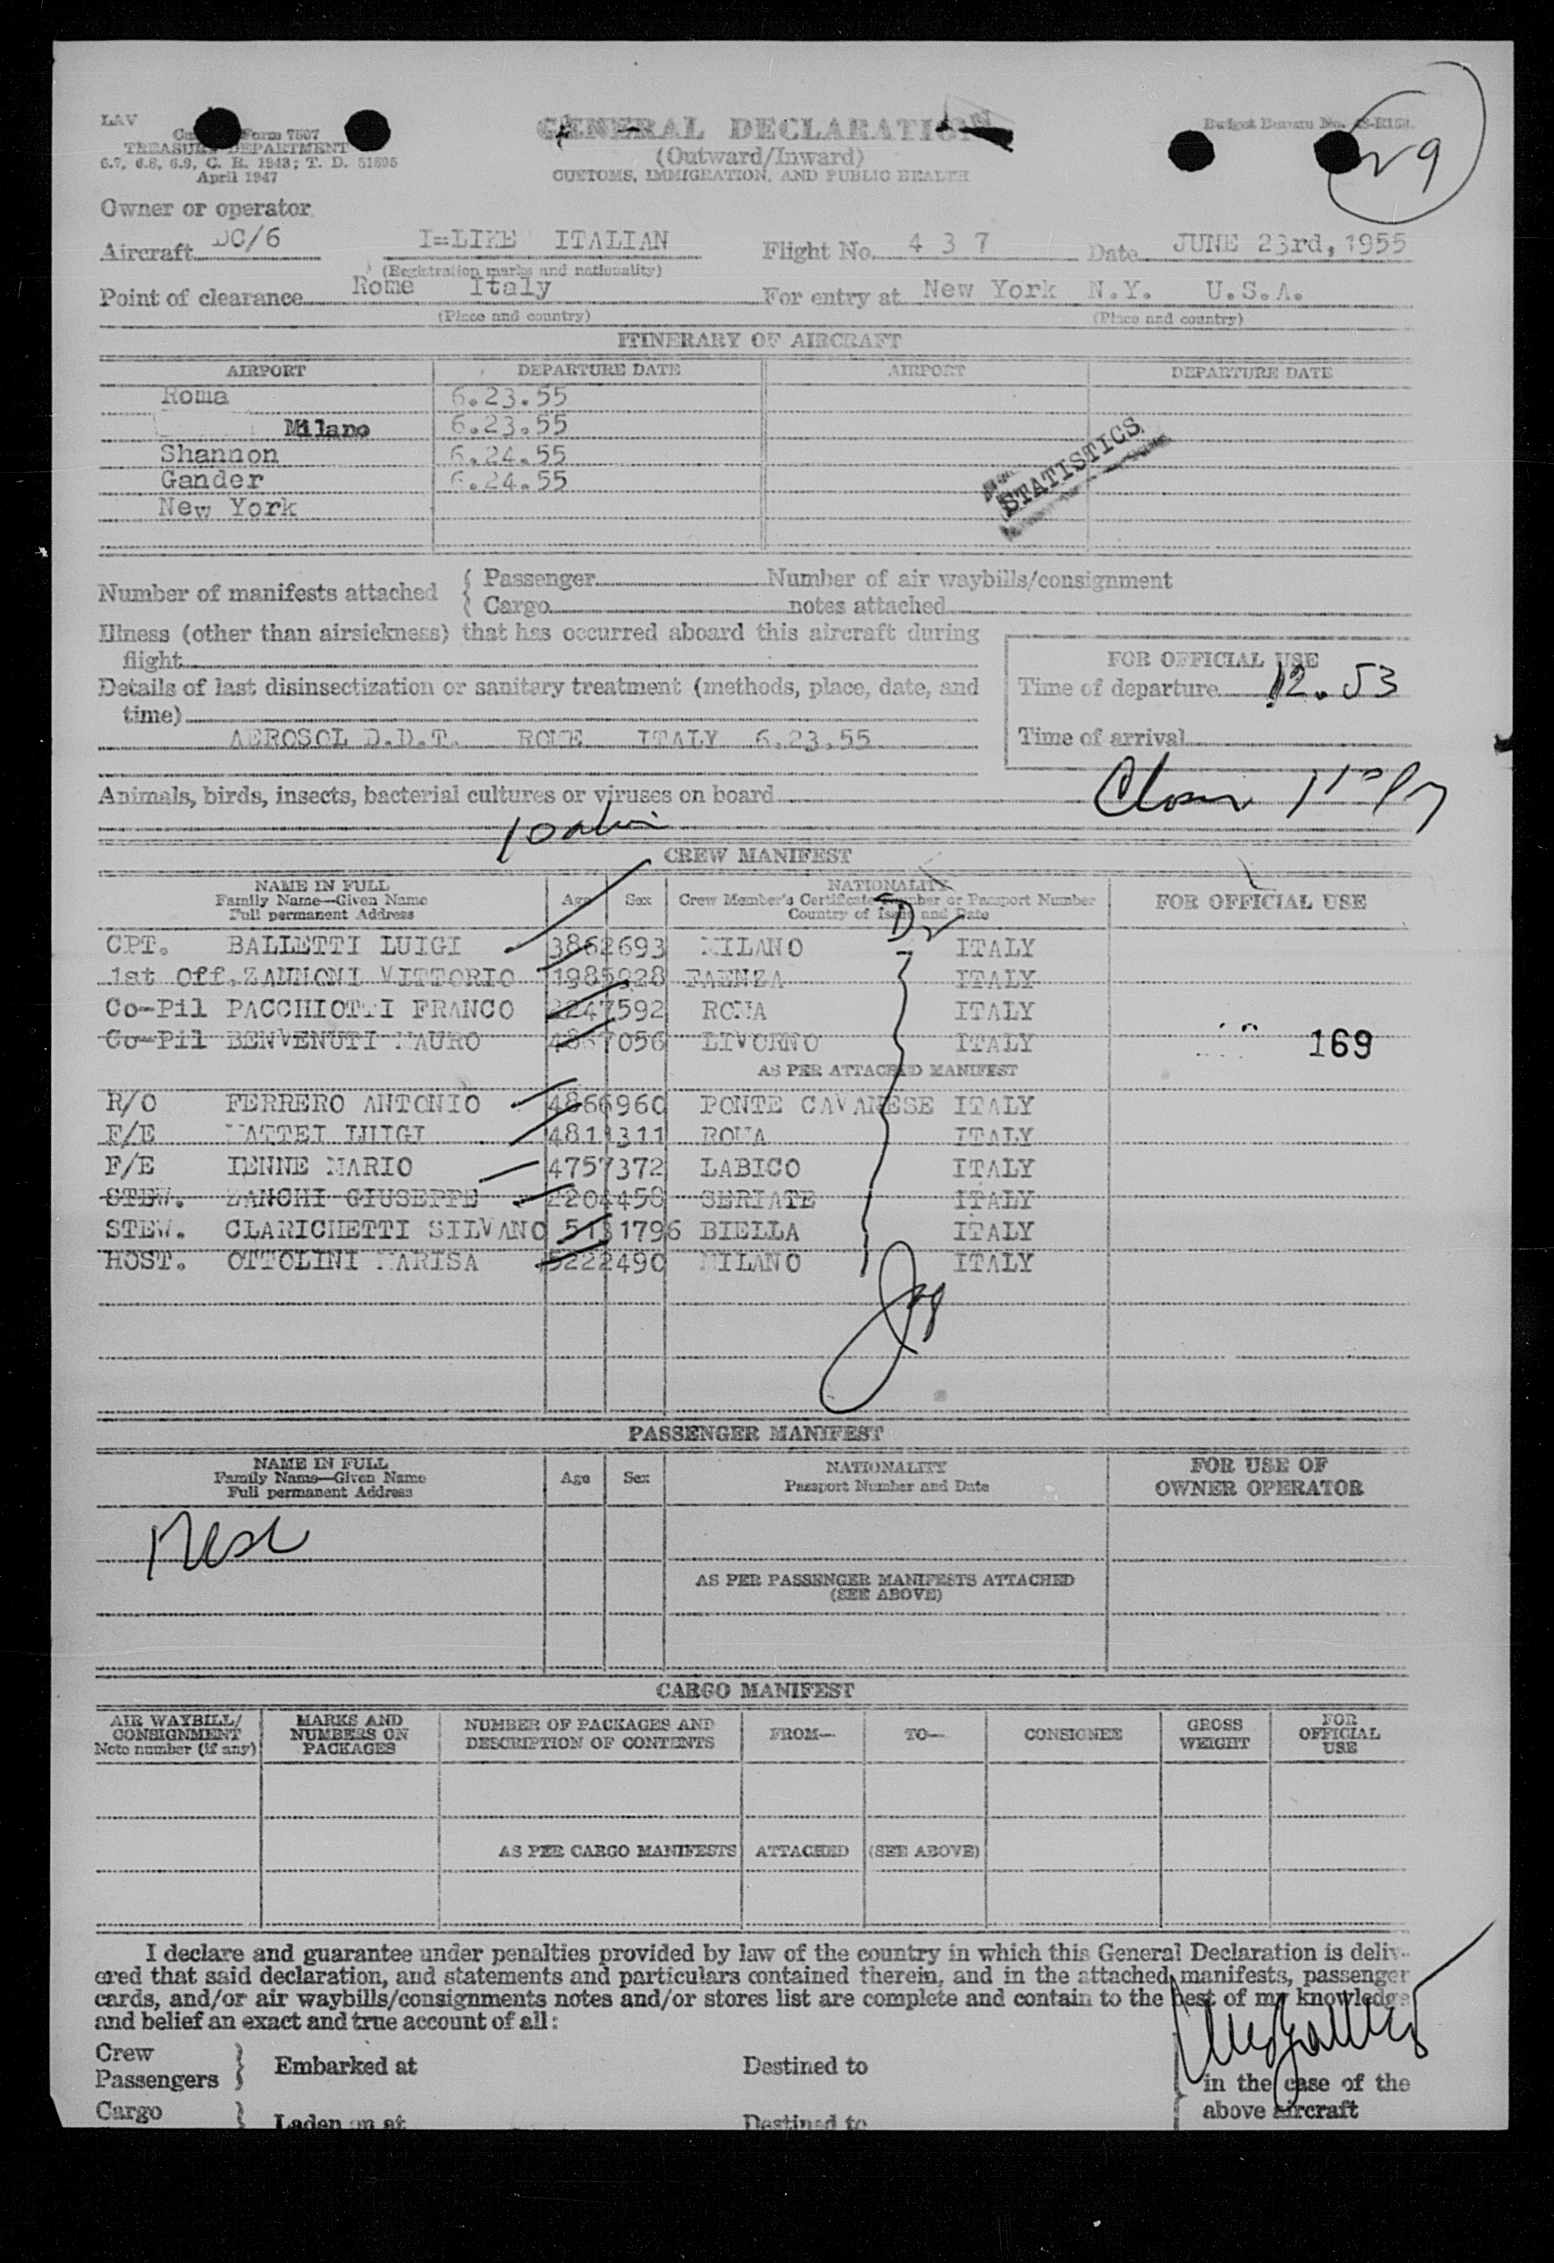 LAV
Form 7507
TREASURY DEPARTMENT
6.7, 6.8, 6.9, C. R. 1943; T. D. 51805
April 1947
GENERAL DECLARATION
(Outward/Inward)
CUSTOMS, IMMIGRATION, AND PUBLIC HEALTH
Budget Bureau No.
29
Owner or operator
Aircraft DC/6 I=LIKE ITALIAN Flight No. 4 3 7 Date JUNE 23rd, 1955
(Registration marks and nationality)
Point of clearance Rome Italy For entry at New York N.Y. U.S.A.
(Place and country) (Place and country)
ITINERARY OF AIRCRAFT
AIRPORT DEPARTURE DATE AIRPORT DEPARTURE DATE
Roma 6.23.55
Milano 6.23.55
Shannon 6.24.55
Gander 6.24.55
New York
STATISTICS
Number of manifests attached { Passenger Number of air waybills/consignment
{ Cargo notes attached
Illness (other than airsickness) that has occurred aboard this aircraft during
flight
Details of last disinsectization or sanitary treatment (methods, place, date, and
time)
AEROSOL D.D.T. ROME ITALY 6.23.55
FOR OFFICIAL USE
Time of departure 12.53
Time of arrival
Animals, birds, insects, bacterial cultures or viruses on board
CREW MANIFEST
NAME IN FULL
Family Name—Given Name
Full permanent Address
Age Sex
NATIONALITY
Crew Member's Certificate Number or Passport Number
Country of Issue and Date
FOR OFFICIAL USE
CPT. BALLETTI LUIGI 3862693 MILANO ITALY
1st Off. ZANNONI VITTORIO 1985928 FAENZA ITALY
Co-Pil PACCHIOTTI FRANCO 2247592 ROMA ITALY
Co-Pil BENVENUTI MAURO 4867056 LIVORNO ITALY
169
AS PER ATTACHED MANIFEST
R/O FERRERO ANTONIO 4866960 PONTE CAVANESE ITALY
F/E MATTEI LUIGI 4811311 ROMA ITALY
F/E IENNE MARIO 4757372 LABICO ITALY
STEW. ZANCHI GIUSEPPE 2204458 SERIATE ITALY
STEW. CLARICHETTI SILVANO 5131796 BIELLA ITALY
HOST. OTTOLINI MARISA 5222490 MILANO ITALY
PASSENGER MANIFEST
NAME IN FULL
Family Name—Given Name
Full permanent Address
Age Sex
NATIONALITY
Passport Number and Date
FOR USE OF
OWNER OPERATOR
AS PER PASSENGER MANIFESTS ATTACHED
(SEE ABOVE)
CARGO MANIFEST
AIR WAYBILL/
CONSIGNMENT
Note number (if any)
MARKS AND
NUMBERS ON
PACKAGES
NUMBER OF PACKAGES AND
DESCRIPTION OF CONTENTS
FROM— TO— CONSIGNEE
GROSS
WEIGHT
FOR
OFFICIAL
USE
AS PER CARGO MANIFESTS ATTACHED (SEE ABOVE)
I declare and guarantee under penalties provided by law of the country in which this General Declaration is deliv-
ered that said declaration, and statements and particulars contained therein, and in the attached manifests, passenger
cards, and/or air waybills/consignments notes and/or stores list are complete and contain to the best of my knowledge
and belief an exact and true account of all:
Crew
Passengers } Embarked at Destined to
in the case of the
above aircraft
Cargo } Laden on at Destined to